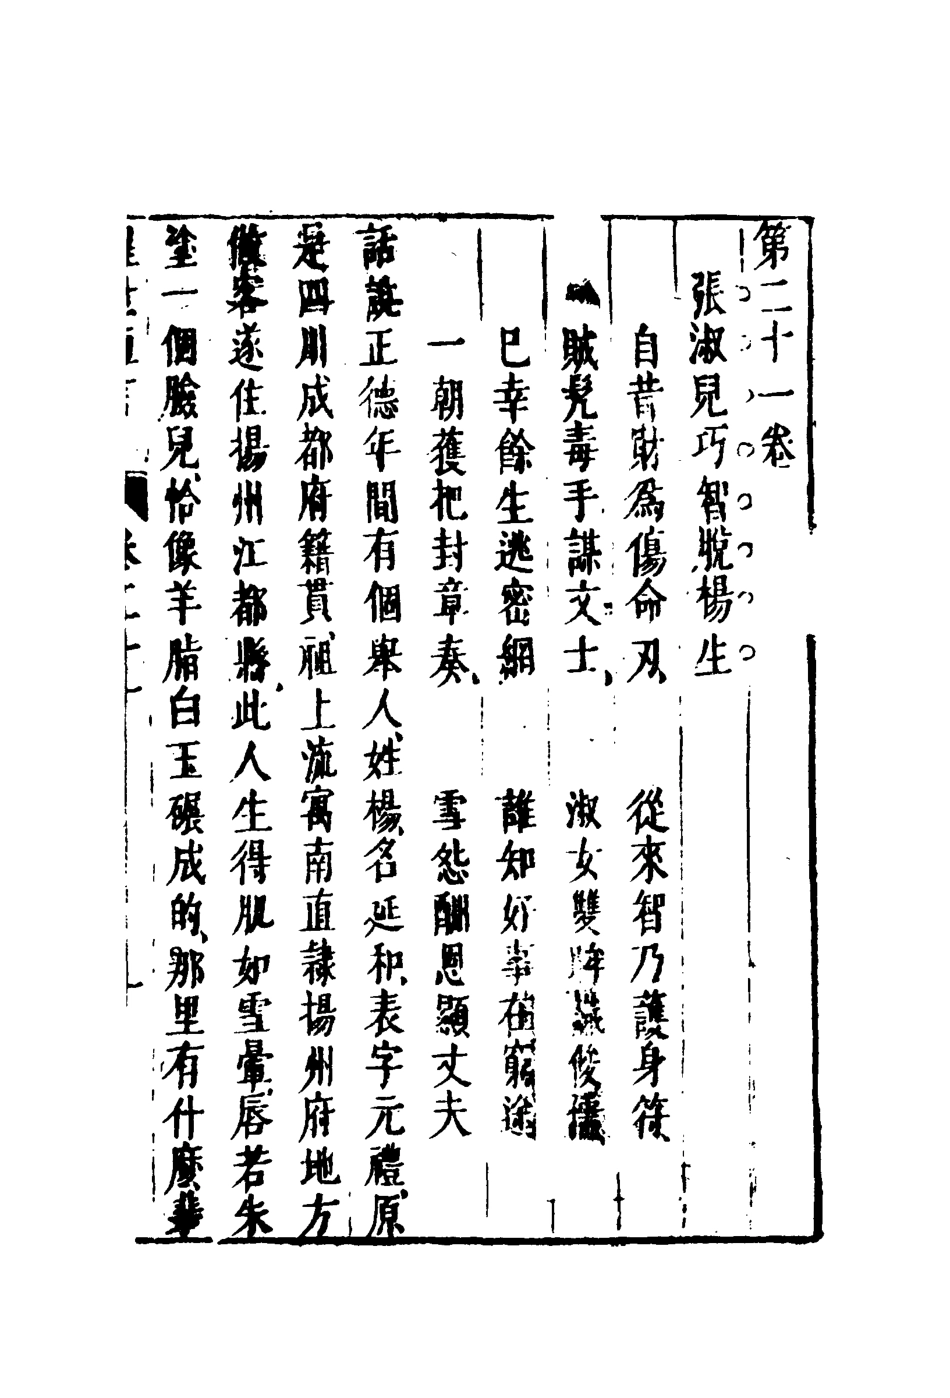 第二十一卷
張淑兒巧智脫楊生
自昔財為傷命刃、從來智乃護身符
賊髡毒手謀文士、淑女雙眸識俊儒
已幸餘生逃密網 誰知好事在窮途
一朝獲把封章奏、雪怨酬恩顯丈夫
話說正德年間有個舉人、姓楊、名延和、表字元禮、原
是四川成都府籍貫、祖上流寓南直隸揚州府地方
做客遂住揚州江都縣、此人生得肌如雪暈、唇若朱
塗一個臉兒、恰像羊脂白玉碾成的、那里有什麼裴